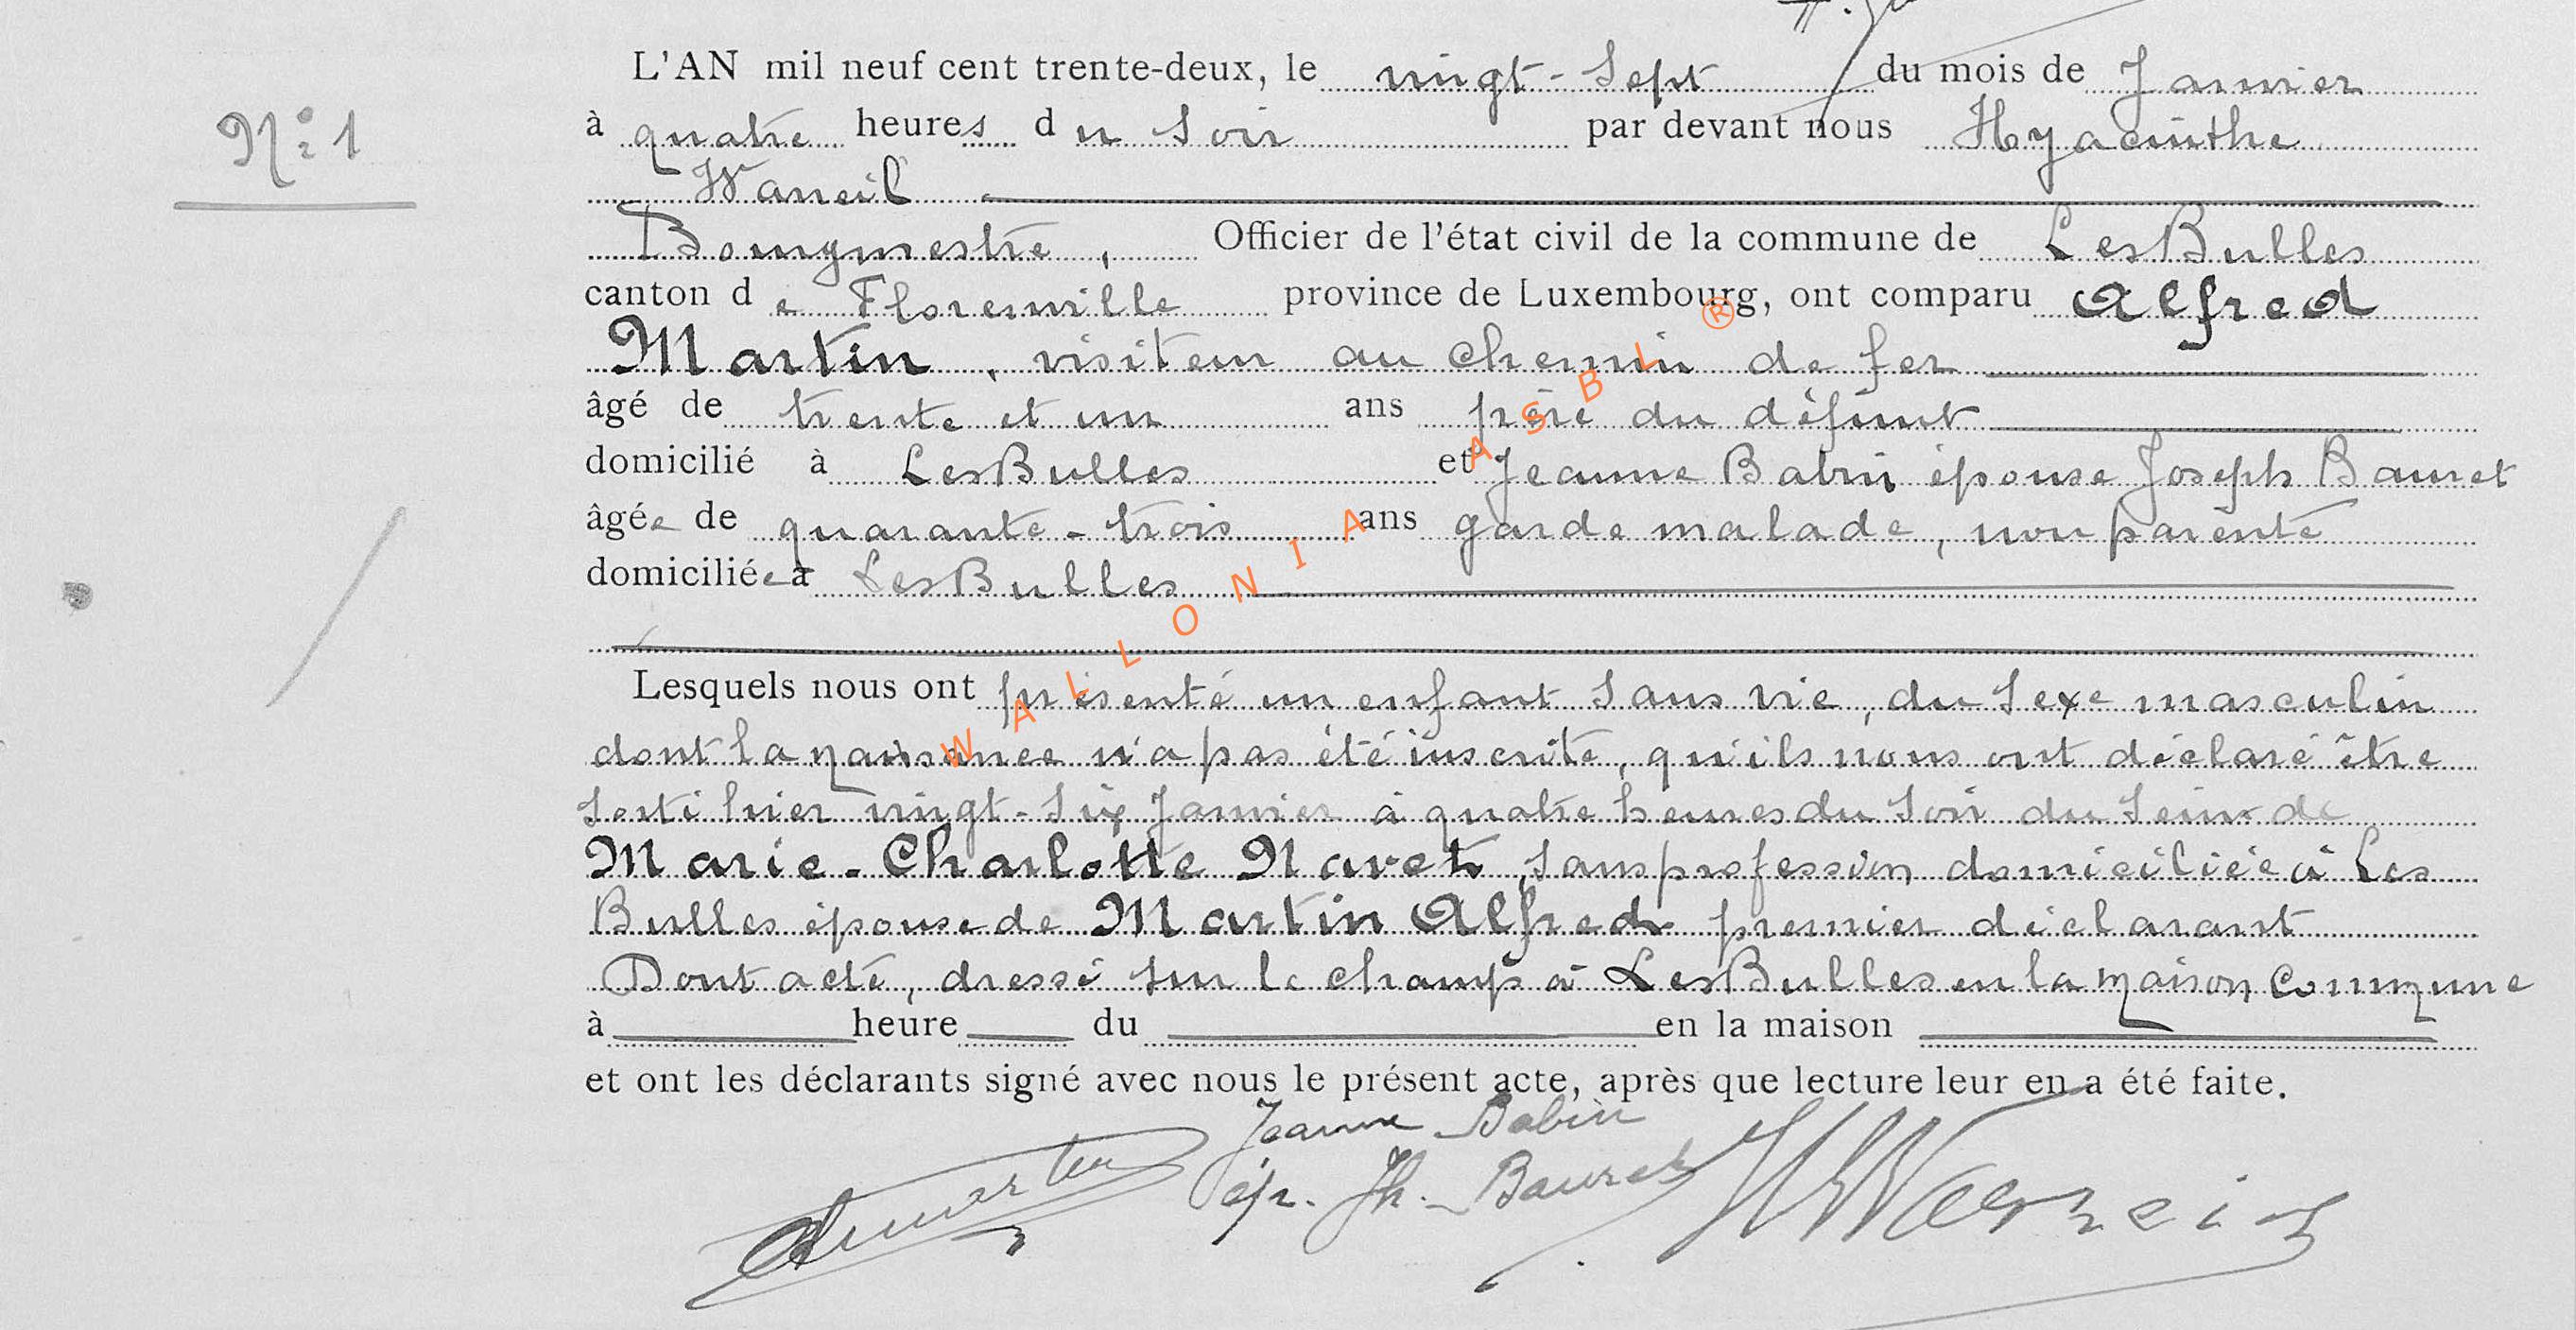 L'AN mil neuf cent trente-deux, le vingt-Sept du mois de Janvier
N° 1
à quatre heures du Soir par devant nous Hyacinthe
Waneil
Bourgmestre, Officier de l'état civil de la commune de LesBulles
canton de Florenville province de Luxembourg, ont comparu Alfred
Martin, visiteur au chemin de fer
âgé de trente et un ans père du défunt
domicilié à LesBulles et Jeanne Babin épouse Joseph Bauret
âgée de quarante-trois ans garde malade, non parenté
domiciliée à LesBulles
Lesquels nous ont présenté un enfant Sans vie, du Sexe masculin
dont la naissance n'a pas été inscrite, qu'ils nous ont déclaré être
Sorti hier vingt-Six Janvier à quatre heures du Soir du Sein de
Marie-Charlotte Navet, Sans profession domiciliée à Les
Bulles épouse de Martin Alfred premier déclarant
Dont acte, dressé sur le champ à LesBulles en la maison Commune
à heure du en la maison
et ont les déclarants signé avec nous le présent acte, après que lecture leur en a été faite.
Jeanne Babin
ép. Jh. Bauret
WALLONIA ASBL ®